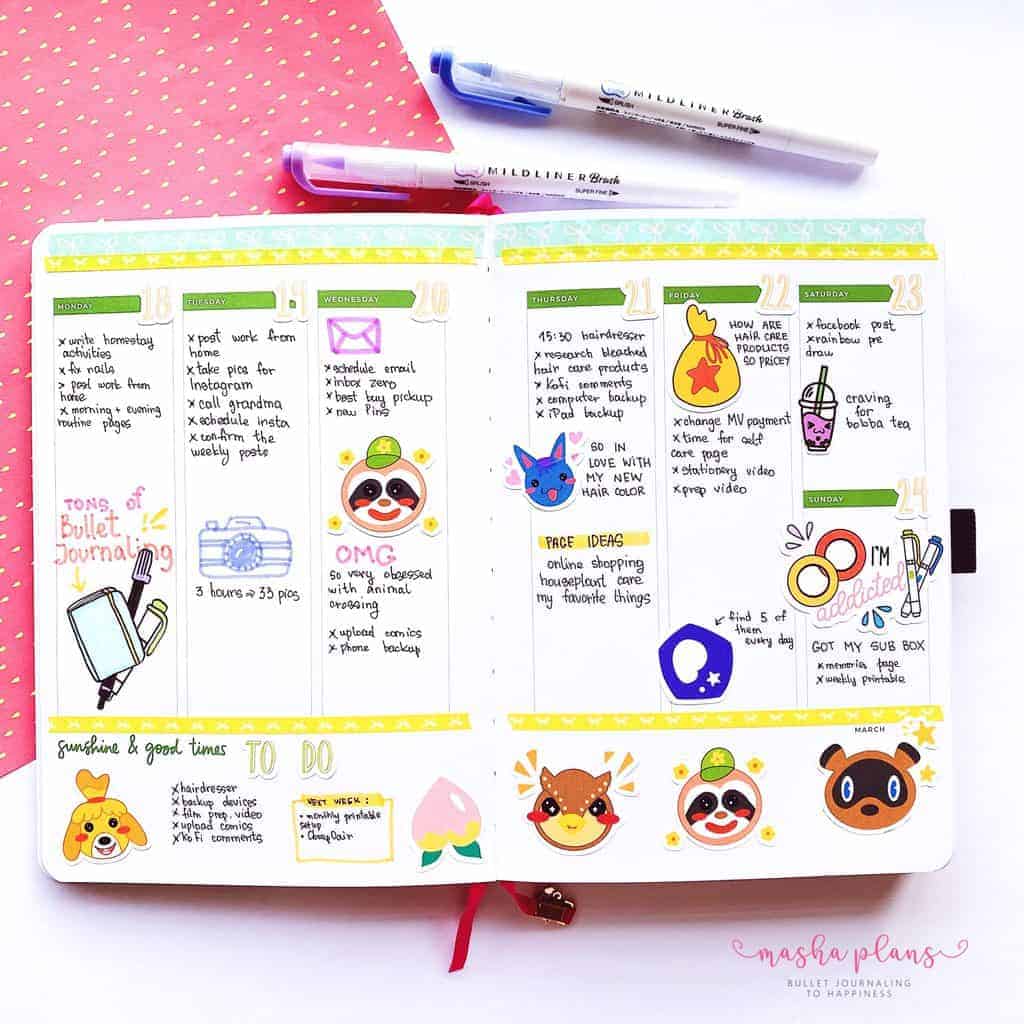 MILDLINER Brush
BRUSH
SUPER FINE
MILDLINER Brush
BRUSH
SUPER FINE
MONDAY 18
x write homestay
activities
x fix nails
> post work from
home
x morning + evening
routine pages
TONS of
Bullet
Journaling
TUESDAY 19
x post work from
home
x take pics for
Instagram
x call grandma
x schedule insta
x confirm the
weekly posts
3 hours ⇒ 33 pics
WEDNESDAY 20
x schedule email
x inbox zero
x best buy pickup
x new Pins
OMG
so very obsessed
with animal
crossing
x upload comics
x phone backup
THURSDAY 21
15:30 hairdresser
x research bleached
hair care products
x Kofi comments
x computer backup
x iPad backup
SO IN
LOVE WITH
MY NEW
HAIR COLOR
PAGE IDEAS
online shopping
houseplant care
my favorite things
FRIDAY 22
HOW ARE
HAIR CARE
PRODUCTS
SO PRICEY
x change MV payment
x time for self
care page
x stationery video
x prep video
← find 5 of
them
every day
SATURDAY 23
x facebook post
x rainbow pre
draw
craving
for
bobba tea
SUNDAY 24
I'M
addicted
GOT MY SUB BOX
x memories page
x weekly printable
sunshine & good times TO DO
x hairdresser
x backup devices
x film prep. video
x upload comics
x Ko Fi comments
NEXT WEEK:
• monthly printable
setup
MARCH
masha plans
BULLET JOURNALING
TO HAPPINESS